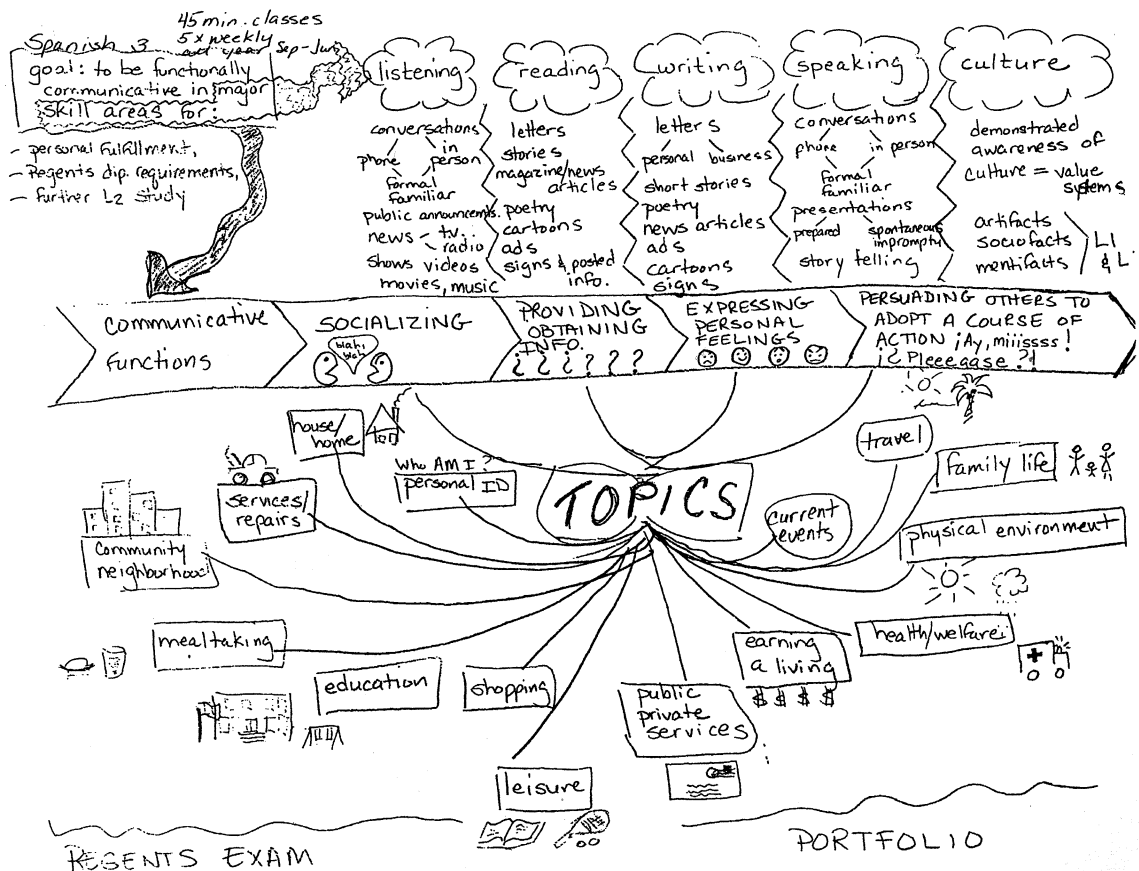 45 min. classes
5x weekly
Sep-June
Spanish 3
goal: to be functionally
communicative in major
skill areas for:
- personal fulfillment,
- Regents dip. requirements,
- further L2 study
listening
conversations
phone in person
formal
familiar
public announcmts.
news - t.v.
radio
shows videos
movies, music
reading
letters
stories
magazine/news
articles
poetry
cartoons
ads
signs & posted
info.
writing
letters
personal business
short stories
poetry
news articles
ads
cartoons
signs
speaking
conversations
phone in person
formal
familiar
presentations
prepared spontaneous
impromptu
story telling
culture
demonstrated
awareness of
culture = value
systems
artifacts
sociofacts
mentifacts
L1
& L
communicative
functions
SOCIALIZING
blah,
blah
PROVIDING
OBTAINING
INFO.
¿ ¿ ¿ ? ? ?
EXPRESSING
PERSONAL
FEELINGS
PERSUADING OTHERS TO
ADOPT A COURSE OF
ACTION ¡Ay, miiissss!
¡¿ Pleeegase ?!
house/
home
Who AM I?
personal ID
TOPICS
travel
family life
services/
repairs
current
events
physical environment
community
neighbourhood
mealtaking
education
shopping
earning
a living
$ $ $ $
health/welfare
public
private
services
leisure
REGENTS EXAM
PORTFOLIO